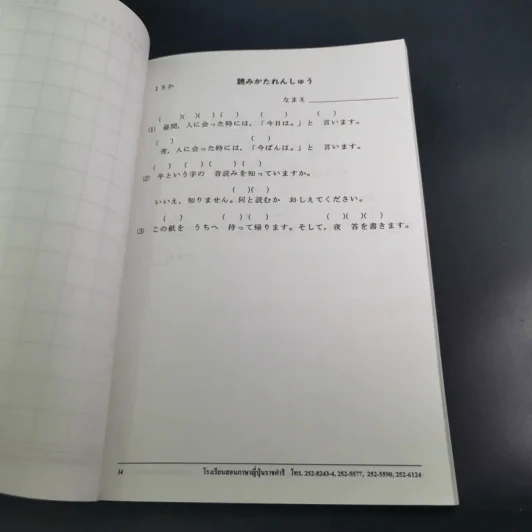 読みかたれんしゅう
13か
なまえ
(   )(  )(  ) (  ) (   ) (  )
(1) 昼間，人に会った時には，「今日は。」と 言います。
(  ) (  )
夜，人に会った時には，「今ばんは。」と 言います。
(  ) (  )(   )(  )
(2) 牛という字の 音読みを知っていますか。
(  )(  )
いいえ，知りません。何と読むか おしえてください。
(  ) (  )(  ) (  )(  )(  )
(3) この紙を うちへ 持って帰ります。そして，夜 答を書きます。
34
โรงเรียนสอนภาษาญี่ปุ่นราชดำริ โทร. 252-8243-4, 252-5577, 252-5590, 252-6124